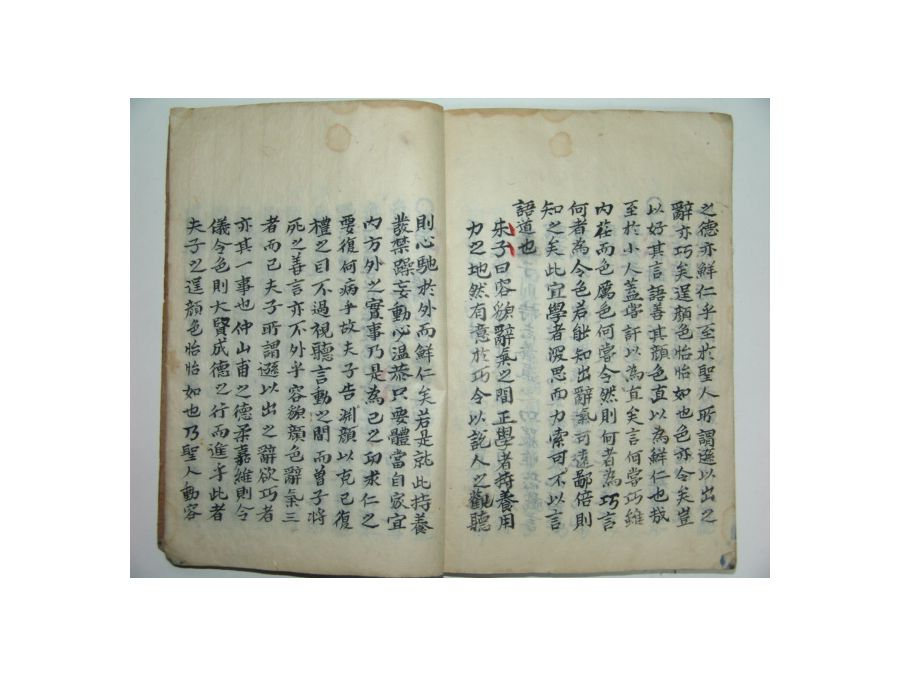 之德亦鮮仁乎至於聖人所謂遜以出之
辭亦巧矣逞顔色怡怡如也色亦令矣豈
以好其言語善其顔色直以為鮮仁也哉
至於小人盖嘗訐以為直矣言何嘗巧維
內荏而色厲色何嘗令然則何者為巧言
何者為令色若能知出辭氣可遠鄙倍則
知之矣此宜學者深思而力索可不以言
語道也
朱子曰容貌辭氣之間正學者持養用
力之地然有意於巧令以說人之觀聽
則心馳於外而鮮仁矣若是就此持養
發禁躁妄動心温恭只要體當自家宜
內方外之實事乃是為己之功求仁之
要復何病乎故夫子告淵顔以克己復
禮之目不過視聽言動之間而曾子將
死之善言亦不外乎容貌顔色辭氣三
者而已夫子所謂遜以出之辭欲巧者
亦其一事也仲山甫之德柔嘉維則令
儀令色則大賢成德之行而進乎此者
夫子之逞顔色怡怡如也乃聖人動容